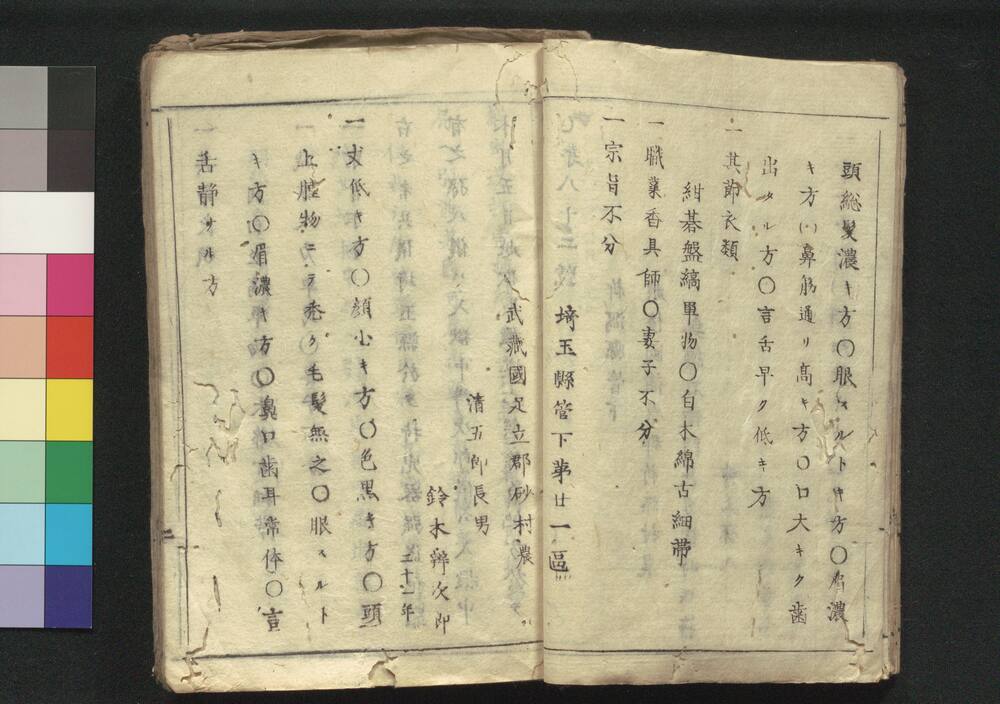 頭総髪濃キ方〇眼スルトキ方〇眉濃
キ方〇鼻筋通リ高キ方〇口大キク歯
出タル方〇言舌早ク低キ方
一其節衣類
紺碁盤縞単物〇白木綿古細帯
一職業香具師〇妻子不分
一宗旨不分
埼玉縣管下第廿一區
武藏國足立郡砂村農
清五郎長男
鈴木辨次郎
三十一年
一丈低キ方〇顔小キ方〇色黒キ方〇頭
上腫物ニテ禿ク毛髪無之〇眼スルト
キ方〇眉濃キ方〇鼻口歯耳常体〇言
舌静カル方